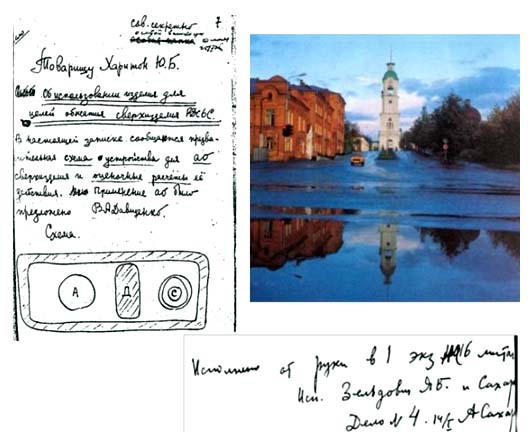 сов. секретно
7
особой важности
особая папка
Товарищу Харитон Ю.Б.
Об использовании изделия для
целей обжатия сверхизделия РДС6С
В настоящей записке сообщаются предва-
рительная схема устройства для АО
сверхизделия и оценочные расчёты её
действия. Применение АО было
предложено В.А.Давиденко.
Схема.
А Д С
Исполнено от руки в 1 экз на 16 листах
Исп. Зельдович Я.Б. и Сахар
Дело № 4. 14/I А Сахар